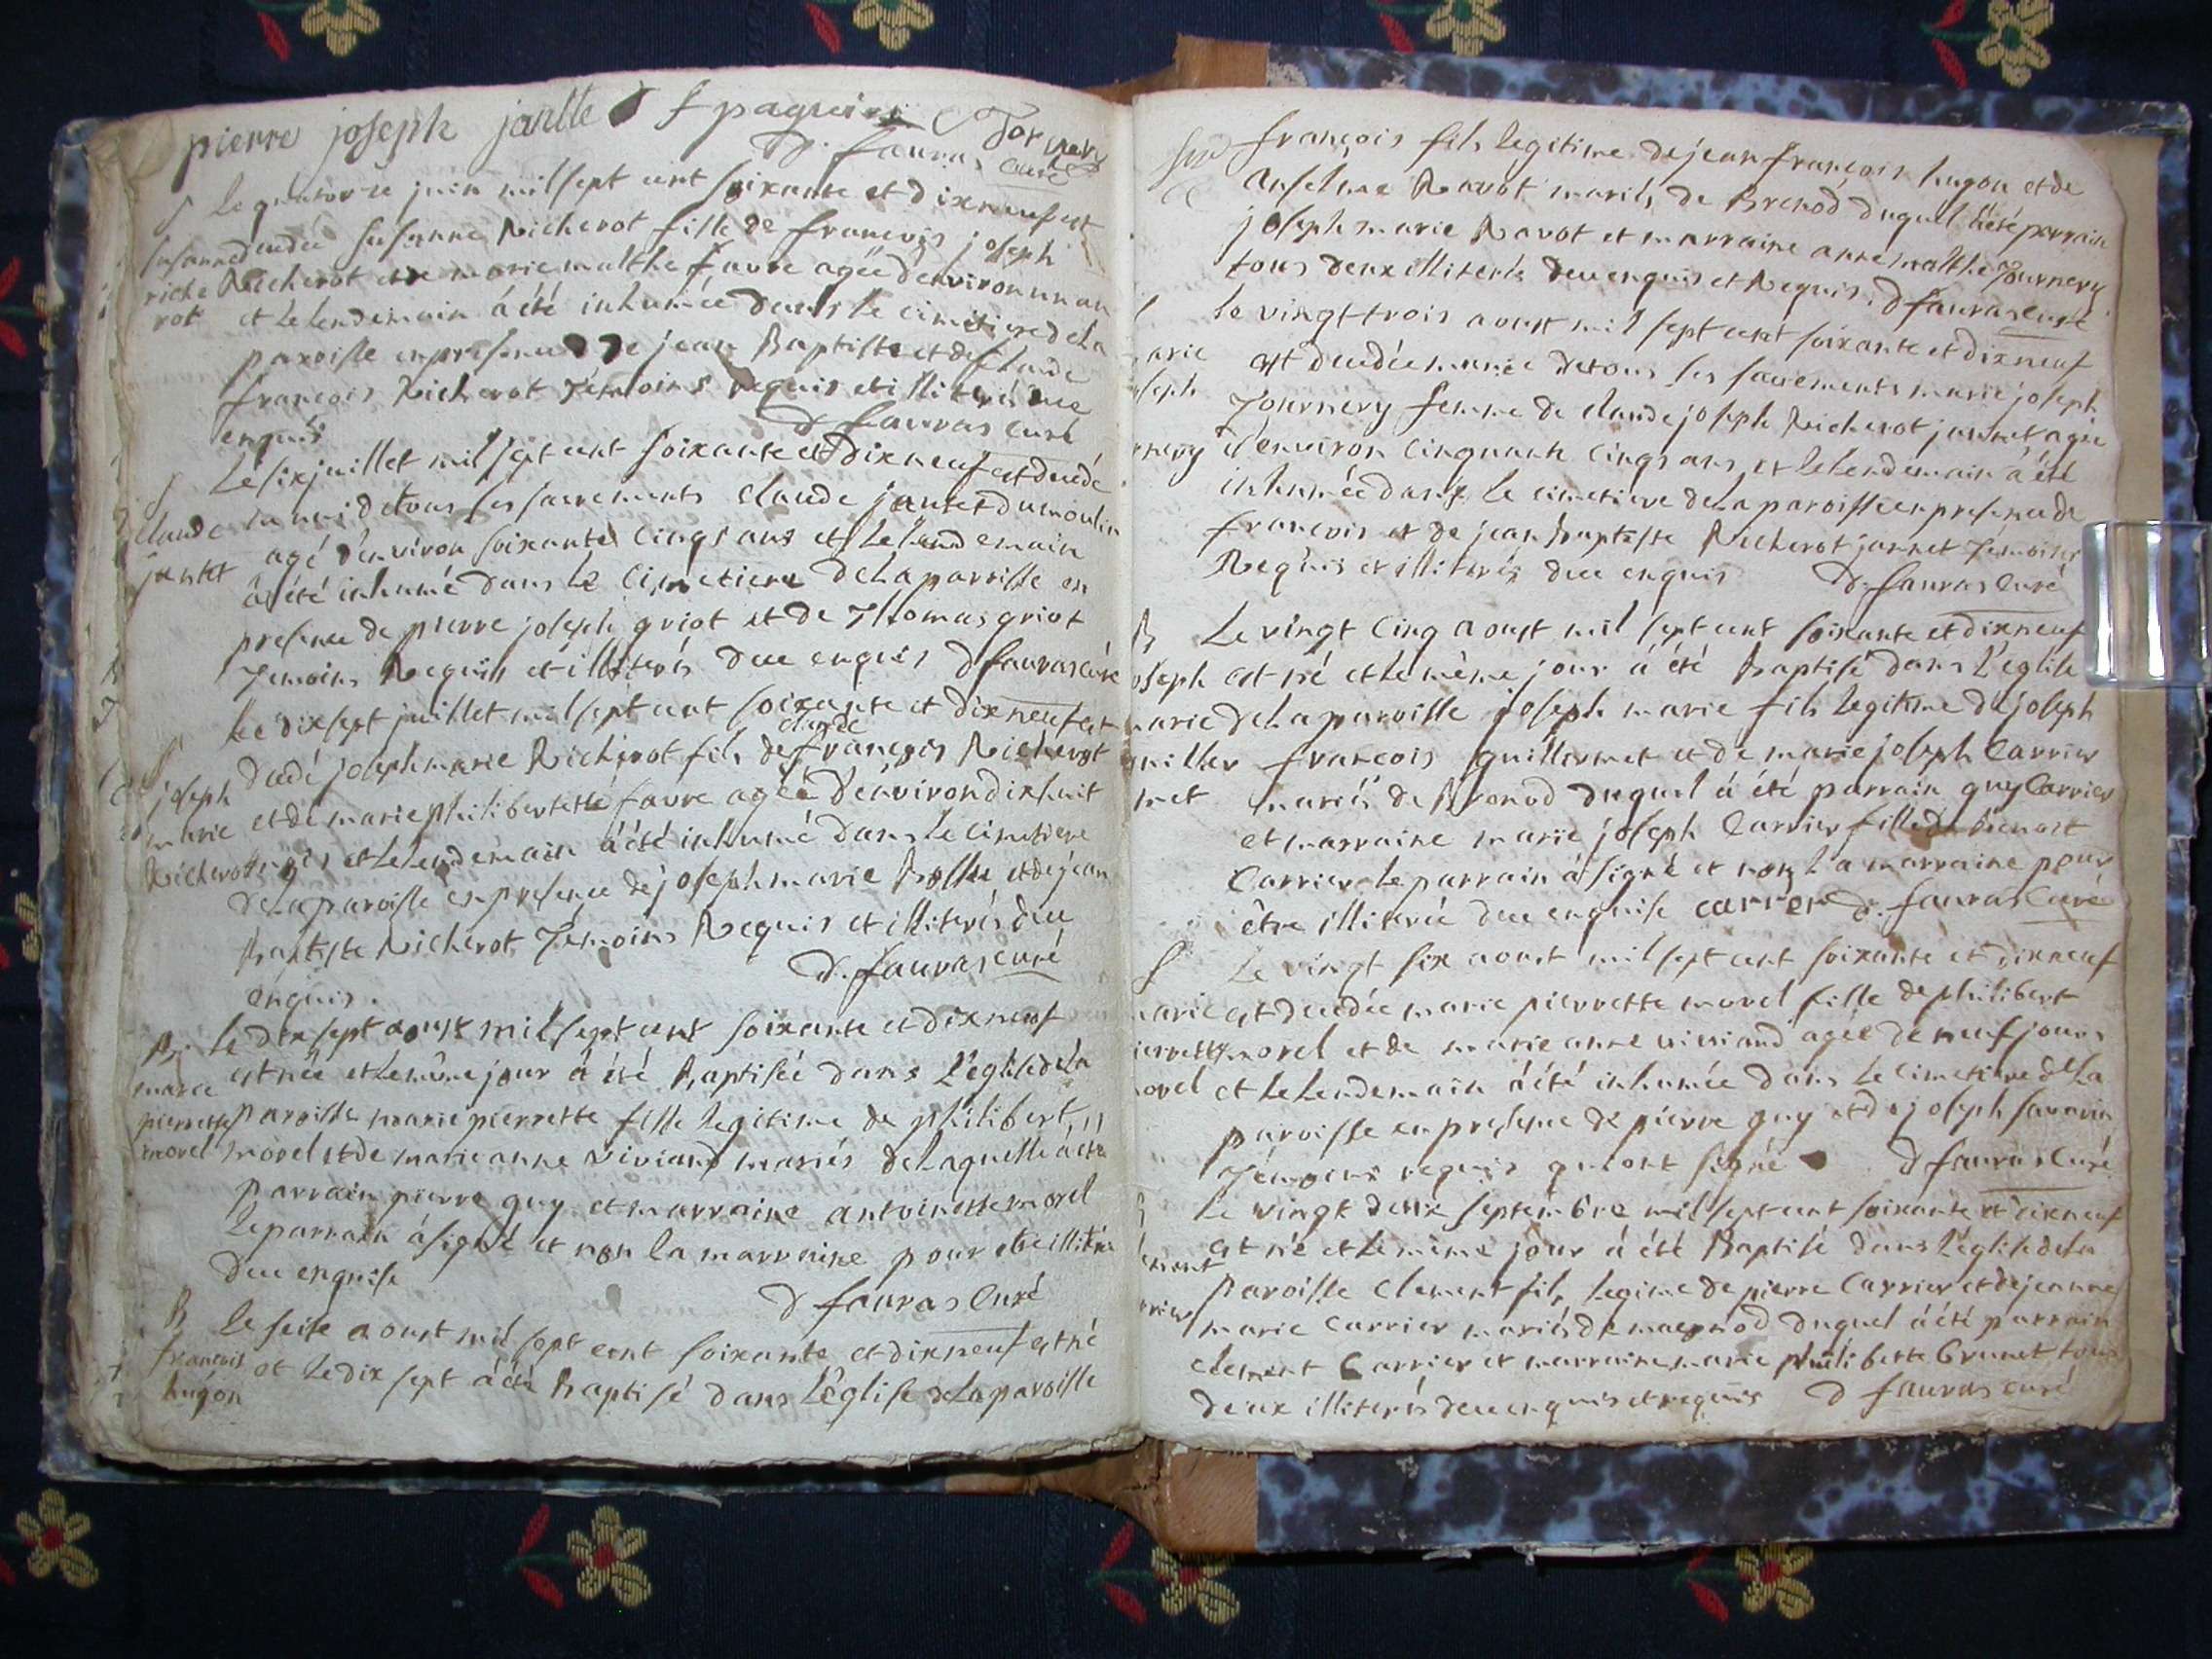 pierre joseph f paguin Tornery
D. fauras curé
S Le quatorze juin mil sept cent soixante et dixneuf est
susanne decedée susanne Richerot fille de francois joseph
riche Richerot et de marie malthe favre agée d'environ un an
rot et le lendemain à été inhumée dans le cimetiere de la
paroisse en presence de jean Baptiste et de claude
francois Richerot Temoins requis et illiterés due
enquis D fauras curé
S Le six juillet mil sept cent soixante et dixneuf est decedé
munid de tous ses sacrements claude jantet du moulin
claude agé d'environ soixante cinqs ans et le lendemain
jantet à été inhumé dans le cimetiere de la paroisse en
presence de pierre joseph griot et de Thomas griot
Temoins Requis et illiterés due enquis D fauras curé
S Le dixsept juillet mil sept cent soixante et dixneuf est
claude
joseph decedé joseph marie Richerot fils de francois Richerot
marie et de marie philibertette favre agée d'environ dixhuit
Richerot et le lendemain à été inhumé dans le cimetiere
de la paroisse en presence de joseph marie et de jean
Baptiste Richerot Temoins Requis et illiterés due
enquis. D. fauras curé
B. Le dix sept aoust mil sept cent soixante et dixneuf
marie est née et le même jour à été Baptisée dans l'église de la
pierrette paroisse marie pierrette fille legitime de philibert
morel morel et de marie anne viviand mariés de laquelle à été
parrain pierre guy et marraine antoinette morel
le parrain à signé et non la marraine pour être illiterée
due enquise
D fauras curé
B Le seise aoust mil sept cent soixante et dixneuf est né
francois et le dix sept à été Baptisé dans l'église de la paroisse
hugon
francois fils legitime de jean francois hugon et de
anselme Ravot mariés de Brenod duquel à été parrain
joseph marie Ravot et marraine anne malthe Tournery
tous deux illiterés due enquis et Requis. D fauras curé
Le vingt trois aoust mil sept cent soixante et dixneuf
arie est decedée munie de tous ses sacrements marie joseph
oseph Tournery femme de claude joseph Richerot jannet agée
rnery d'environ cinquante cinqs ans et le lendemain à été
inhumée dans le cimetiere de la paroisse en presence de
francois et de jean baptiste Richerot jannet Temoins
Requis et illiterés due enquis D. fauras curé
B Le vingt cinq aoust mil sept cent soixante et dixneuf
oseph est né et le même jour à été Baptisé dans l'église
arie de la paroisse joseph marie fils legitime de joseph
uiller francois guillermet et de marie joseph Carrier
met mariés de Brenod duquel à été parrain guy Carrier
et marraine marie joseph Carrier fille de Benoit
Carrier le parrain à signé et non la marraine pour
être illiterée due enquise carrier D. fauras Curé
S Le vingt six aoust mil sept cent soixante et dixneuf
arie est decedée marie pierrette morel fille de philibert
ierrette morel et de marie anne viviand agée de neuf jours
orel et le lendemain à été inhumée dans le cimetiere de la
paroisse en presence de pierre guy et de joseph savarin
Témoins requis qui ont signé D fauras Curé
Le vingt deux septembre mil sept cent soixante et dixneuf
est né et le même jour à été Baptisé dans l'église de la
ement paroisse Clement fils legime de pierre Carrier et de jeanne
rrier marie Carrier mariés de duquel à été parrain
clement Carrier et marraine marie philiberte Brunet tous
deux illiterés due enquis et requis D fauras curé